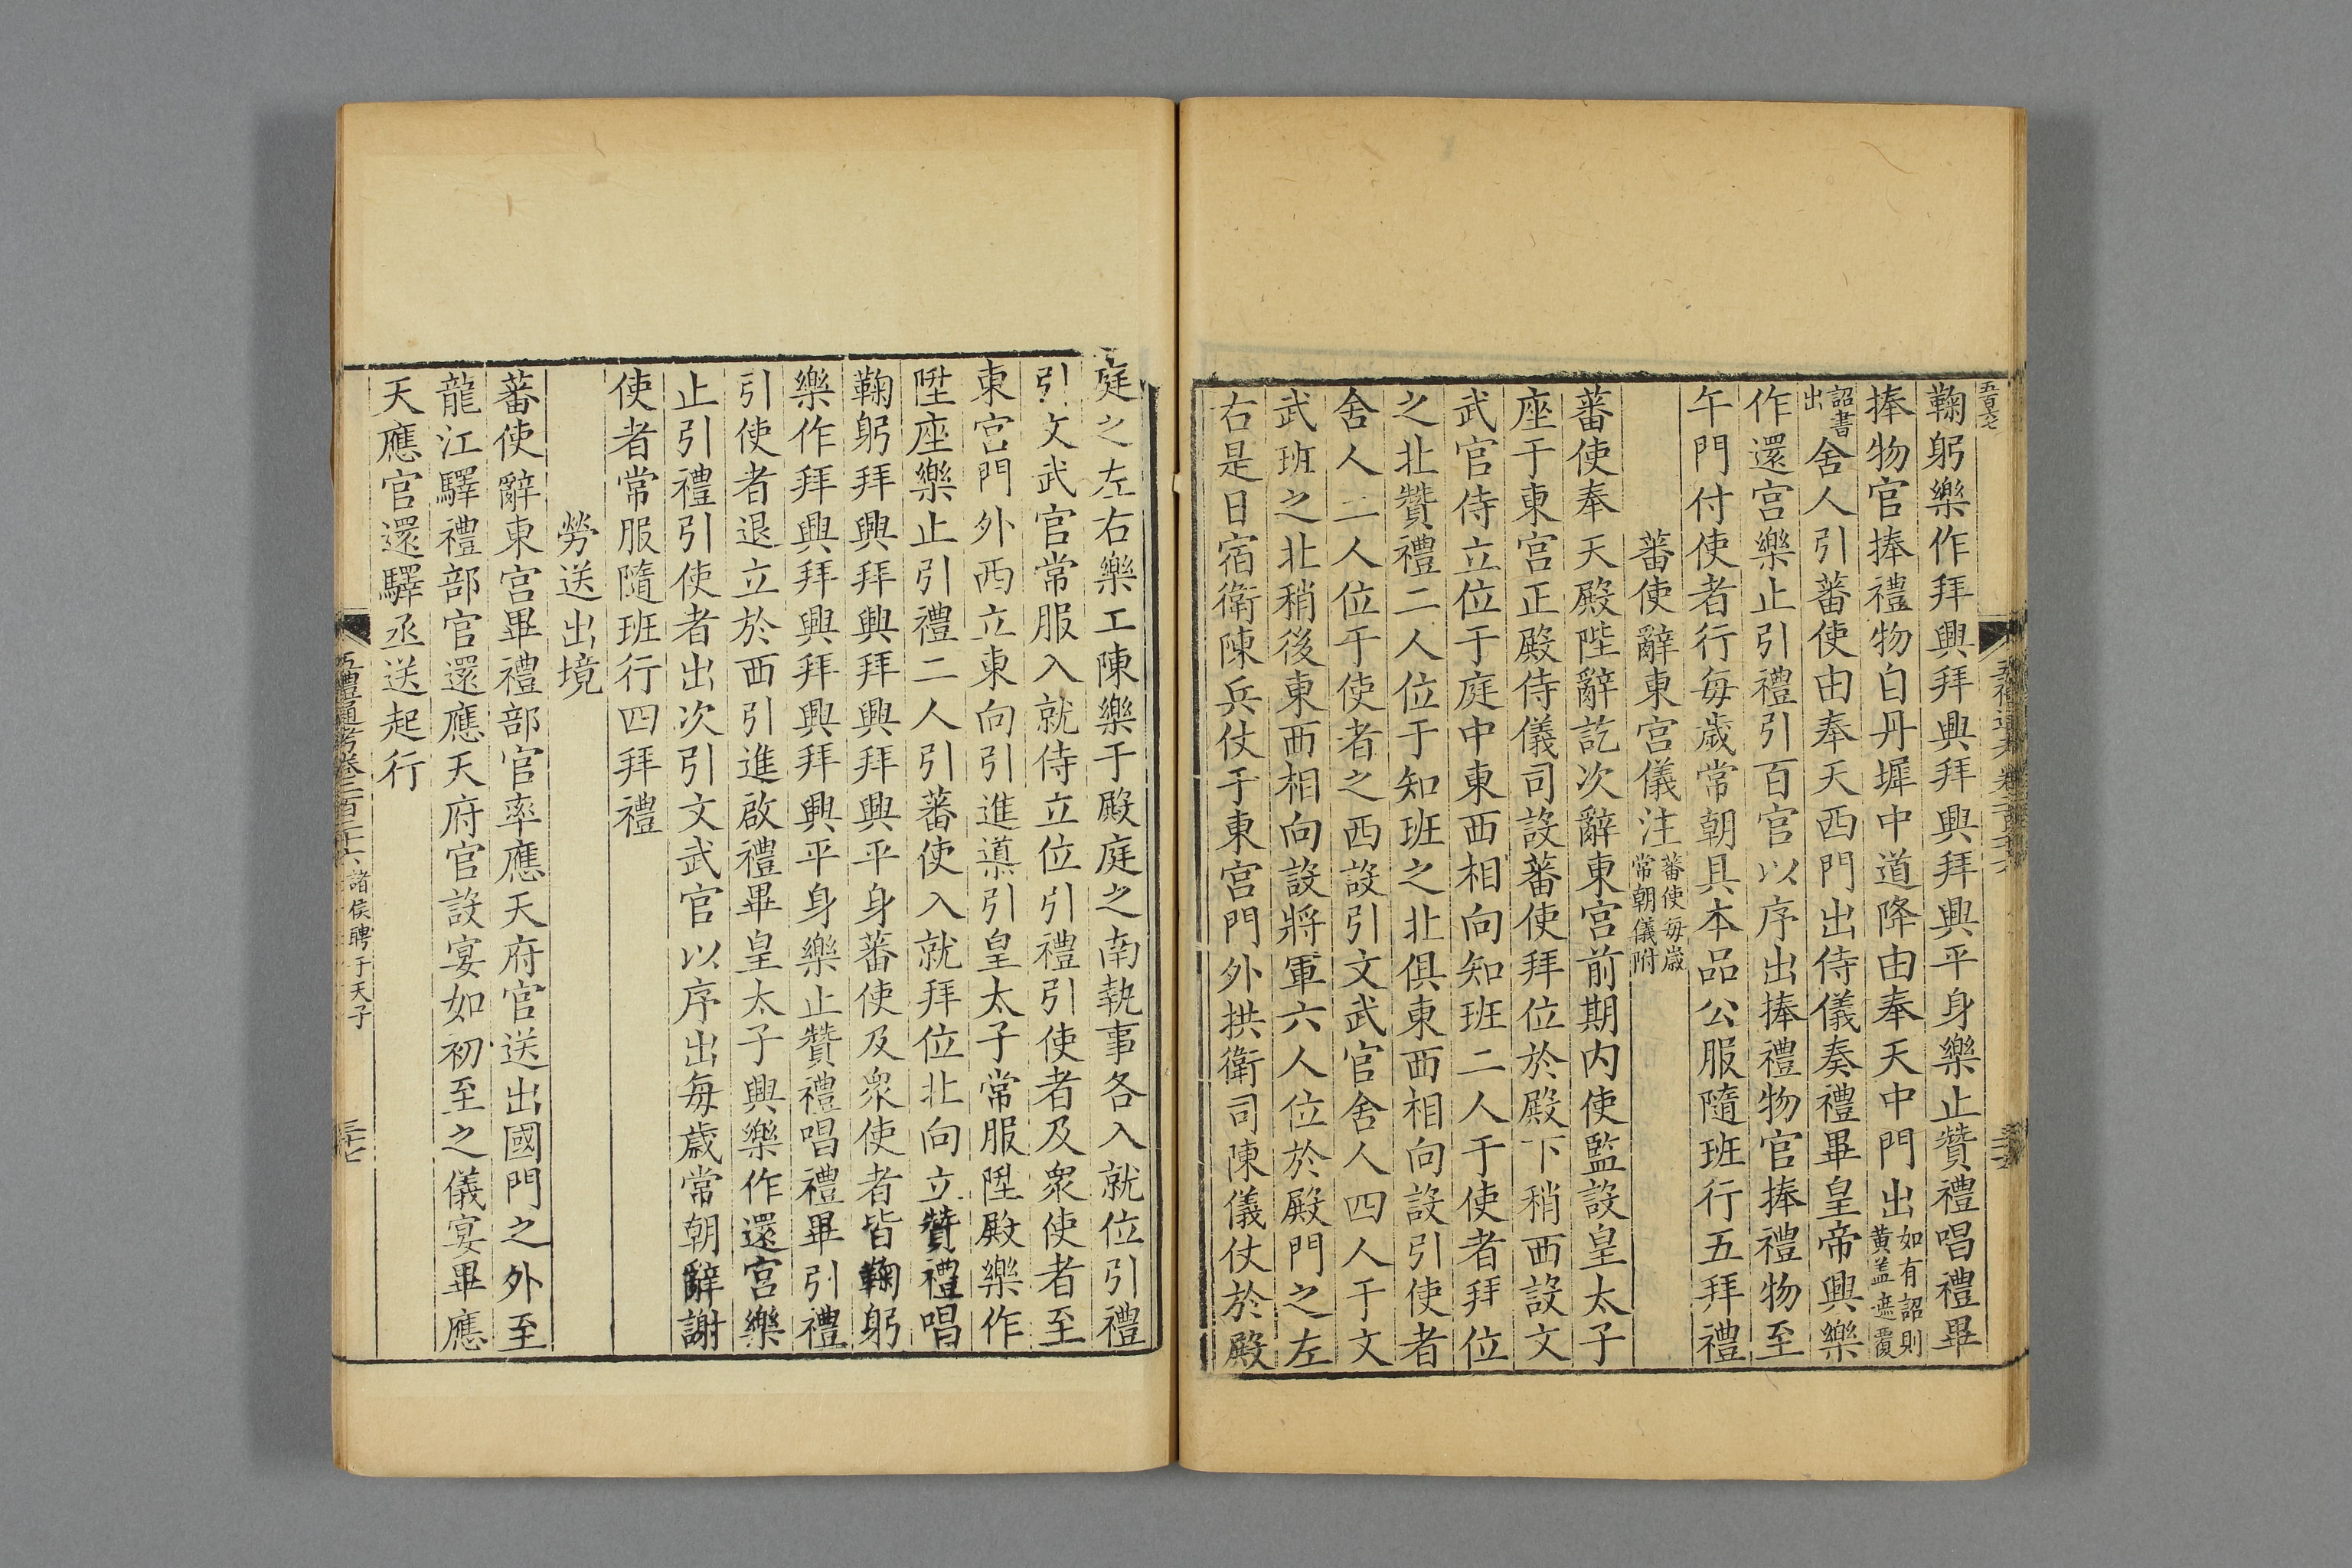 鞠躬樂作拜興拜興拜興拜興平身樂止贊禮唱禮畢
捧物官捧禮物自丹墀中道降由奉天中門出如有詔則黃盖遮覆
詔書出舍人引蕃使由奉天西門出侍儀奏禮畢皇帝興樂
作還宮樂止引禮引百官以序出捧禮物官捧禮物至
午門付使者行每歲常朝具本品公服隨班行五拜禮
蕃使辭東宮儀注蕃使每歲常朝儀附
蕃使奉天殿陛辭訖次辭東宮前期內使監設皇太子
座于東宮正殿侍儀司設蕃使拜位於殿下稍西設文
武官侍立位于庭中東西相向知班二人于使者拜位
之北贊禮二人位于知班之北俱東西相向設引使者
舍人二人位于使者之西設引文武官舍人四人于文
武班之北稍後東西相向設將軍六人位於殿門之左
右是日宿衛陳兵仗于東宮門外拱衛司陳儀仗於殿
庭之左右樂工陳樂于殿庭之南執事各入就位引禮
引文武官常服入就侍立位引禮引使者及衆使者至
東宮門外西立東向引進導引皇太子常服陞殿樂作
陞座樂止引禮二人引蕃使入就拜位北向立贊禮唱
鞠躬拜興拜興拜興拜興平身蕃使及衆使者皆鞠躬
樂作拜興拜興拜興拜興平身樂止贊禮唱禮畢引禮
引使者退立於西引進啟禮畢皇太子興樂作還宮樂
止引禮引使者出次引文武官以序出每歲常朝辭謝
使者常服隨班行四拜禮
勞送出境
蕃使辭東宮畢禮部官率應天府官送出國門之外至
龍江驛禮部官還應天府官設宴如初至之儀宴畢應
天應官還驛丞送起行
五禮通考卷二百二十六 諸侯聘于天子